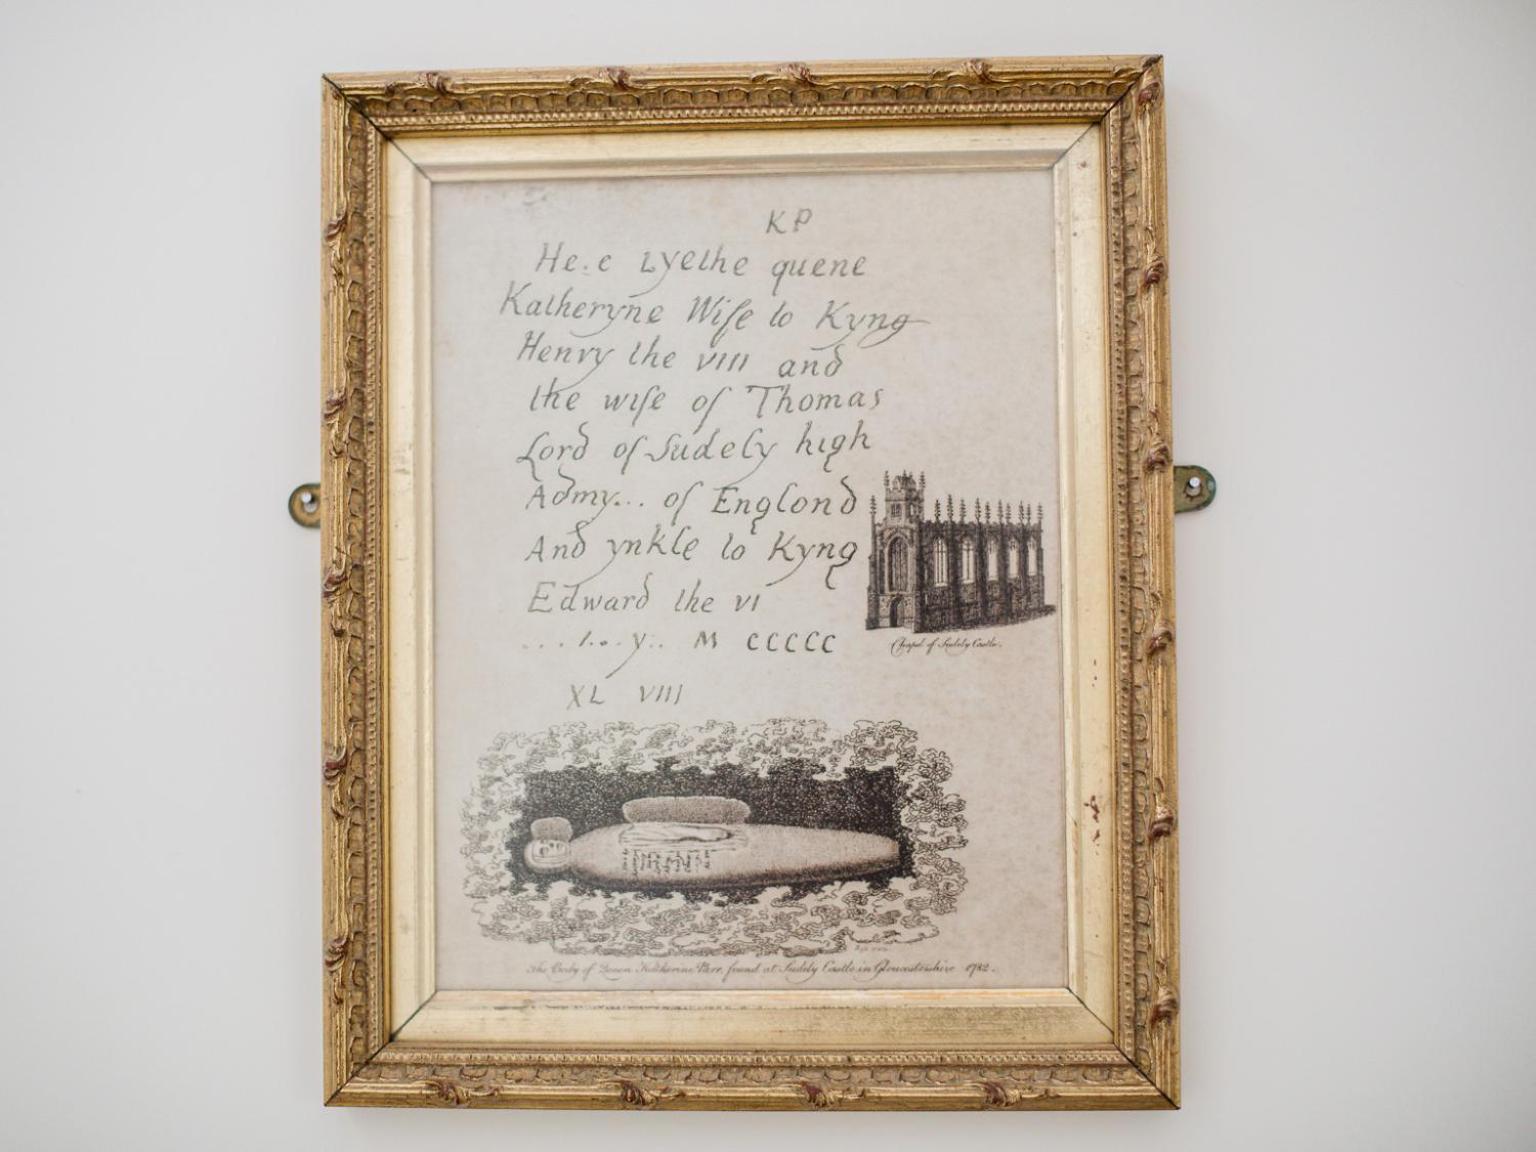 KP
He.e Lyethe quene
Katheryne Wife to Kyng
Henry the VIII and
the wife of Thomas
Lord of Sudely high
Admy... of Englond
And ynkle to Kyng
Edward the VI
...1..y.. M CCCCC
XL VIII
Chapel of Sudely Castle.
The Body of Queen Katherine Parr, found at Sudely Castle in Gloucestershire 1782.